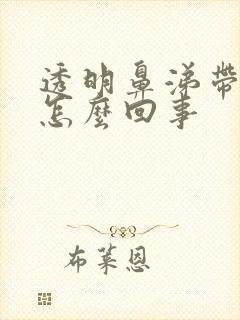 透明鼻涕帶
怎麼回事
布萊恩